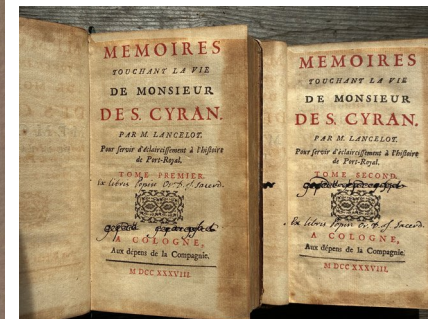 MEMOIRES
TOUCHANT LA VIE
DE MONSIEUR
DE S. CYRAN.
PAR M. LANCELOT.
Pour servir d'éclaircissement à l'histoire
de Port-Royal.
TOME PREMIER.
Ex libris
A COLOGNE,
Aux dépens de la Compagnie.
M DCC XXXVIII.
MEMOIRES
TOUCHANT LA VIE
DE MONSIEUR
DE S. CYRAN.
PAR M. LANCELOT.
Pour servir d'éclaircissement à l'histoire
de Port-Royal.
TOME SECOND.
Ex libris
A COLOGNE,
Aux dépens de la Compagnie.
M DCC XXXVIII.